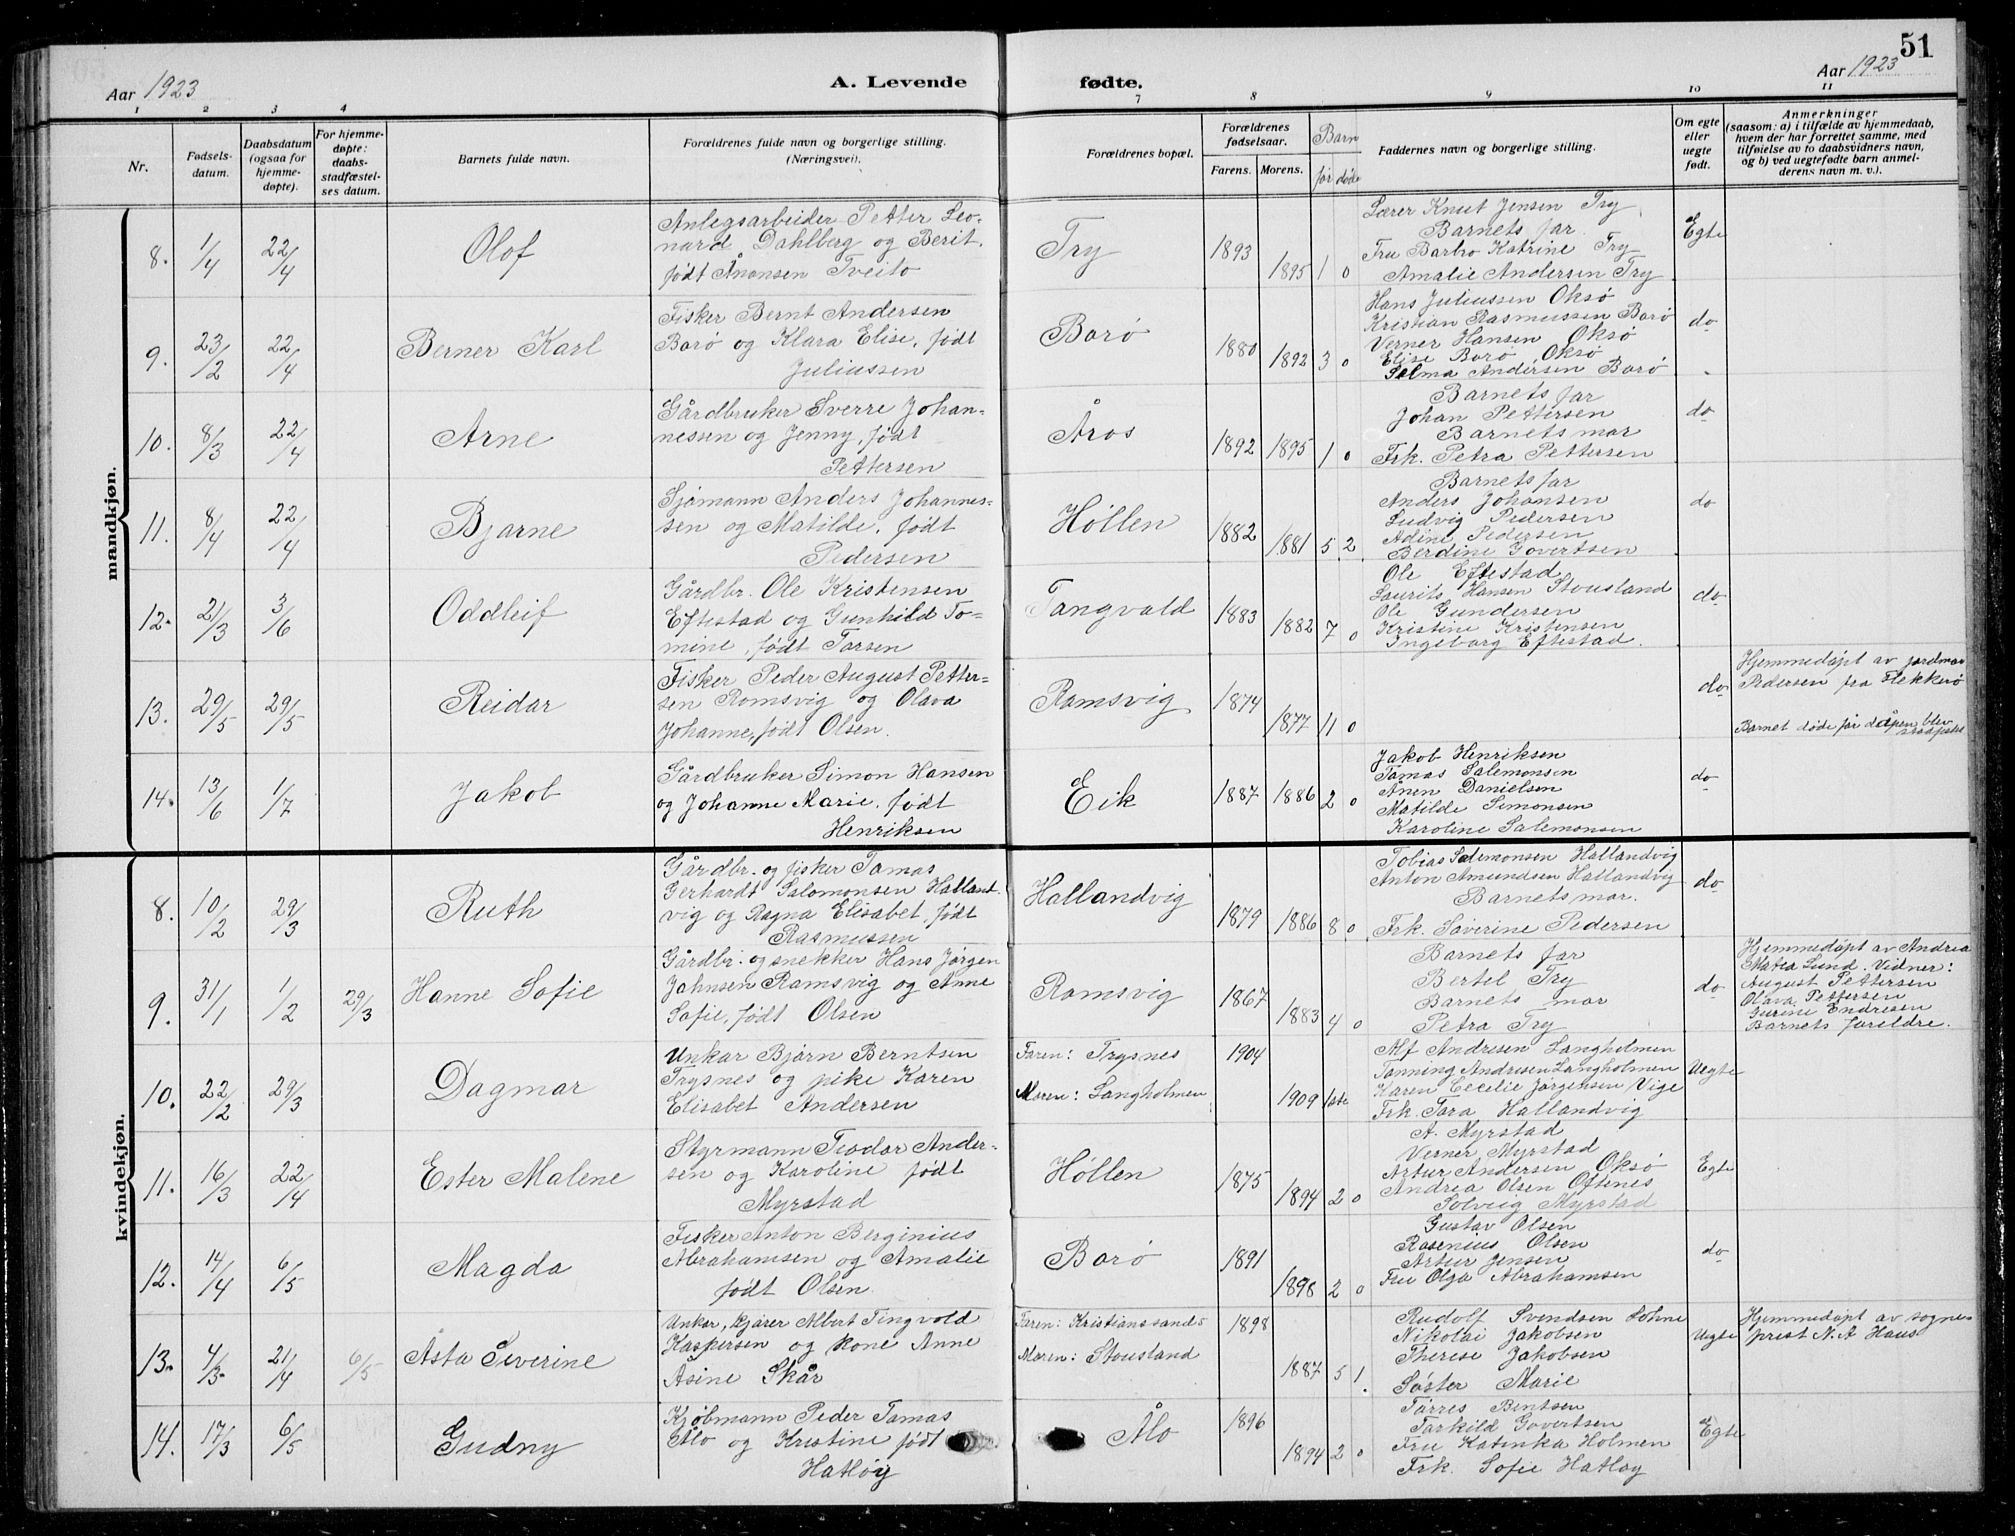 51
Aar 1923
A. Levende fødte.
Aar 1923
1 2 3 4 7 8 9 10 11
Nr.
Fødsels-
datum.
Daabsdatum
(ogsaa for
hjemme-
døpte).
For hjemme-
døpte:
daabs-
stadfæstel-
ses datum.
Barnets fulde navn.
Forældrenes fulde navn og borgerlige stilling.
(Næringsvei).
Forældrenes bopæl.
Forældrenes
fødselsaar.
Farens. Morens.
Barn
før døde
Faddernes navn og borgerlige stilling.
Om egte
eller
uegte
født.
Anmerkninger
(saasom: a) i tilfælde av hjemmedaab,
hvem der har forrettet samme, med
tilføielse av to daabsvidners navn,
og b) ved uegtefødte barn anmel-
derens navn m. v.).
mandkjøn.
8. 1/4 22/4 Olof
Anlegsarbeider Petter Leo-
nard Dahlberg og Berit,
født Ånonsen Tveito
Try 1893 1895 1 0
Lærer Knut Jensen Try
Barnets far.
Fru Barbro Katrine Try
Amalie Andersen Try
Egte
9. 23/2 22/4 Berner Karl
Fisker Bernt Andersen
Borø og Klara Elise, født
Juliussen
Borø 1880 1892 3 0
Hans Juliussen Oksø
Kristian Rasmussen Borø
Verner Hansen Oksø
Elise Borø Oksø
Selma Andersen Borø
do
10. 8/3 22/4 Arne
Gårdbruker Sverre Johan-
nessen og Jenny, født
Pettersen
Åros 1892 1895 1 0
Barnets far
Johan Pettersen
Barnets mor
Frk. Petra Pettersen
do
11. 8/4 22/4 Bjarne
Sjømann Anders Johannes-
sen og Matilde, født
Pedersen
Høllen 1882 1881 5 2
Barnets far
Anders Johansen
Ludvig Pedersen
Adine Pedersen
Berdine Govertsen
do
12. 21/3 3/6 Oddleif
Gårdbr. Ole Kristensen
Eftestad og Gunhild To-
mine, født Torsen
Tangvald 1883 1882 7 0
Ole Eftestad
Laurits Hansen Stousland
Ole Gundersen
Kristine Kristensen
Ingeborg Eftestad.
do
13. 29/5 29/5 Reidar
Fisker Peder August Petter-
sen Romsvig og Olava
Johanne, født Olsen.
Romsvig 1874 1877 11 0
do
Hjemmedøpt av jordmor
Pedersen fra Flekkerø
Barnet døde før dåpen blev
stadfestet
14. 13/6 1/7 Jakob
Gårdbruker Simon Hansen
og Johanne Marie, født
Henriksen
Eik 1887 1886 2 0
Jakob Henriksen
Tomas Salemonsen
Ånen Danielsen
Matilde Simonsen
Karoline Salemonsen
do
kvindekjøn.
8. 10/2 29/3 Ruth
Gårdbr. og fisker Tomas
Gerhardt Salomonsen Halland-
vig og Ragna Elisabet, født
Rasmussen
Hallandvig 1879 1886 8 0
Tobias Salemonsen Hallandvig
Anton Amundsen Hallandvig
Barnets mor.
Frk. Søverine Pedersen
do
9. 31/1 1/2 29/3 Hanne Sofie
Gårdbr. og snekker Hans Jørgen
Johnsen Romsvig og Anne
Sofie, født Olsen
Romsvig 1867 1883 4 0
Barnets far
Bertel Try
Barnets mor
Petra Try
do
Hjemmedøpt av Andrea
Matea Lund. Vidner:
August Pettersen
Olava Pettersen
Gurine Endresen
Barnets foreldre.
10. 22/2 29/3 Dagmar
Unkar Bjørn Berntsen
Trysnes og pike Karen
Elisabet Andersen
Faren: Trysnes
Moren: Langholmen
1904 1909 1ste
Alf Andresen Langholmen
Tønning Andresen Langholmen
Karen Cecelie Jørgensen Vige
Frk. Tora Hallandvig
Uegte
11. 16/3 22/4 Ester Malene
Styrmann Teodor Ander-
sen og Karoline født
Myrstad
Høllen 1875 1894 2 0
A. Myrstad
Verner Myrstad
Artur Andersen Oksø
Andrea Olsen Oftenes
Solveig Myrstad
Egte
12. 14/4 6/5 Magda
Fisker Anton Berginius
Abrahamsen og Amalie
født Olsen.
Borø 1891 1898 2 0
Gustav Olsen
Rosenius Olsen
Artur Jensen
Fru Olga Abrahamsen
do
13. 4/3 21/4 6/5 Åsta Severine
Unkar, kjører Albert Tingvold
Kaspersen og kone Anne
Asine Skår
Faren: Kristianssands
Moren: Stousland
1898 1887 5 1.
Rudolf Svendsen Søhne
Nikolai Jakobsen
Therese Jakobsen
Søster Marie
Uegte
Hjemmedøpt av sogne-
prest N. A Haus
14. 17/3 6/5 Gudny
Kjøbmann Peder Tomas
Ålo og Kristine født
Hatløy
Ålo 1896 1894 2 0
Tørres Bentsen
Torkild Govertsen
Fru Katinka Holmen
Frk. Sofie Hatløy
Egte